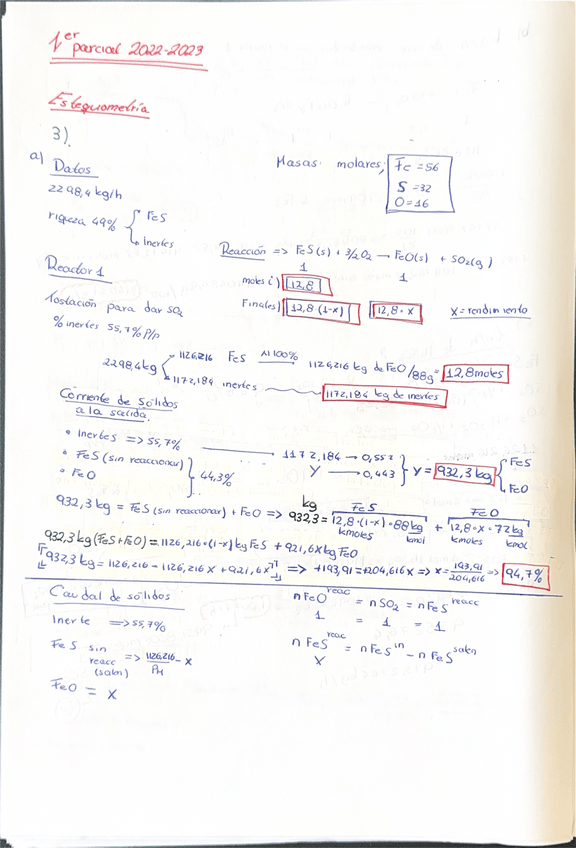 1er parcial 2022-2023
Estequiometría
3)
a) Datos
Masas molares; Fe = 56
S = 32
O = 16
2298,4 kg/h
riqueza 49% { FeS
Inertes
Reacción => FeS(s) + 3/2O2 → FeO(s) + SO2(g)
1 1
Reactor 1
moles i) 12,8
Finales) 12,8 (1-x) 12,8 · x X = rendimiento
Tostación para dar SO2
% inertes 55,7% p/p
2298,4kg
1126,216 FeS Al 100% → 1126,216 kg de FeO/88g = 12,8 moles
1172,184 inertes 1172,184 kg de inertes
Corriente de sólidos
a la salida.
• Inertes => 55,7% → 1172,184 → 0,557
• FeS (sin reaccionar)
• FeO } 44,3% Y → 0,443 } Y = 932,3 kg { FeS
FeO
932,3 kg = FeS (sin reaccionar) + FeO => kg 932,3 = FeS 12,8·(1-x)·88 kg/kmol + FeO 12,8·x·72 kg/kmol
kmoles kmoles
932,3 kg (FeS+FeO) = 1126,216·(1-x) kg FeS + 921,6x kg FeO
932,3 kg = 1126,216 - 1126,216 x + 921,6x => +193,91 = +204,616x => x = 193,91/204,616 => 94,7%
Caudal de sólidos
n FeO reac = n SO2 = n FeS reacc
Inerte => 55,7%
1 = 1 = 1
FeS sin reacc (salen) => 1126,216/PM - x
n FeS reac = n FeS in - n FeS salen
X
FeO = x